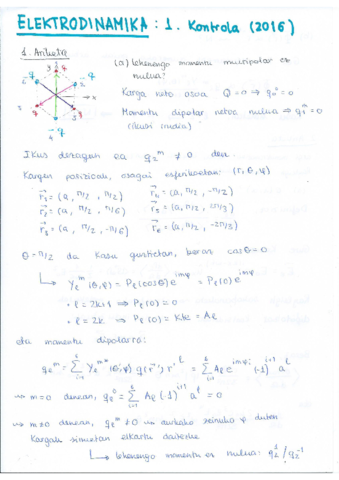 ELEKTRODINAMIKA : 1. Kontrola (2016)
1. Ariketa
(a) Lehenengo momentu multipolar ez nulua?
Karga neto osoa Q = 0 ⇒ q₀⁰ = 0
Momentu dipolar netoa nulua ⇒ q₁ᵐ = 0
(ikusi irudia)
Ikus dezagun ea q₂ᵐ ≠ 0 den.
Kargen posizioak, osagai esferikoetan: (r, θ, φ)
r₁ = (a, π/2, π/2) r₄ = (a, π/2, -π/2)
r₂ = (a, π/2, π/6) r₅ = (a, π/2,
r₃ = (a, π/2, -π/6) r₆ = (a, π/2,
θ = π/2 da kasu guztietan, beraz cosθ = 0
↳ Yₗᵐ(θ,φ) = Pₗ(cosθ) e^{imφ} = Pₗ(0) e^{imφ}
• l = 2k+1 ⇒ Pₗ(0) = 0
• l = 2k ⇒ Pₗ(0) = Kte = Aₗ
eta momentu dipolarra:
qₗᵐ = Σ Yₗᵐ*(θ,φ) q(r') r'ˡ = Σ Aₗ e^{imφᵢ} (-1)^{i+1} aˡ
⇒ m=0 denean, qₗ⁰ = Σ Aₗ (-1)^{i+1} aˡ = 0
⇒ m≠0 denean, qₗᵐ ≠ 0 aurkako zeinuko φ duten
Kargak simetan elkartu daitezke
↳ Lehenengo momentu ez nulua: q₂¹ / q₂⁻¹